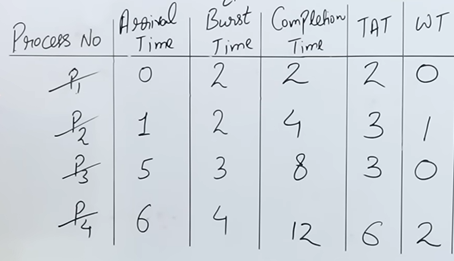 Process No Arrival Time Burst Time Completion Time TAT WT
P1 0 2 2 2 0
P2 1 2 4 3 1
P3 5 3 8 3 0
P4 6 4 12 6 2